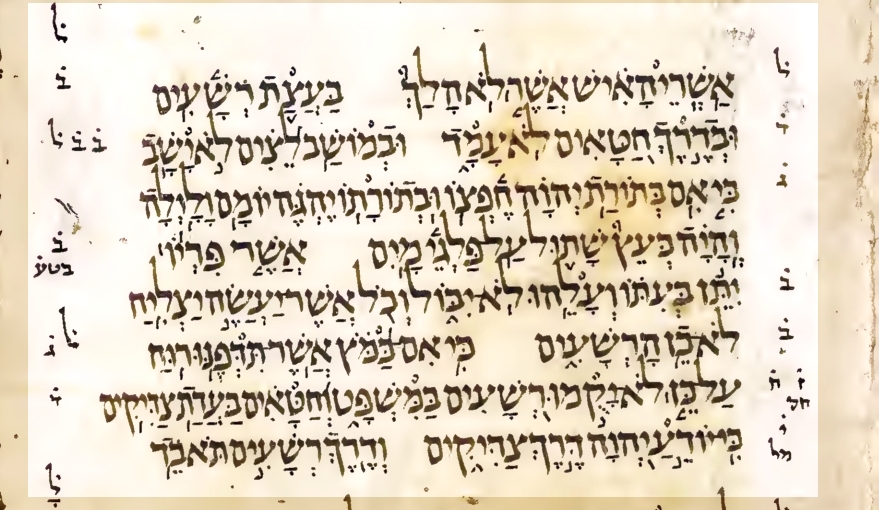 אַשְׁרֵי הָאִישׁ אֲשֶׁר לֹא הָלַךְ בַּעֲצַת רְשָׁעִים
וּבְדֶרֶךְ חַטָּאִים לֹא עָמָד וּבְמוֹשַׁב לֵצִים לֹא יָשָׁב
כִּי אִם בְּתוֹרַת יְהוָה חֶפְצוֹ וּבְתוֹרָתוֹ יֶהְגֶּה יוֹמָם וָלָיְלָה
וְהָיָה כְּעֵץ שָׁתוּל עַל פַּלְגֵי מָיִם אֲשֶׁר פִּרְיוֹ
יִתֵּן בְּעִתּוֹ וְעָלֵהוּ לֹא יִבּוֹל וְכֹל אֲשֶׁר יַעֲשֶׂה יַצְלִיחַ
לֹא כֵן הָרְשָׁעִים כִּי אִם כַּמֹּץ אֲשֶׁר תִּדְּפֶנּוּ רוּחַ
עַל כֵּן לֹא יָקֻמוּ רְשָׁעִים בַּמִּשְׁפָּט וְחַטָּאִים בַּעֲדַת צַדִּיקִים
כִּי יוֹדֵעַ יְהוָה דֶּרֶךְ צַדִּיקִים וְדֶרֶךְ רְשָׁעִים תֹּאבֵד